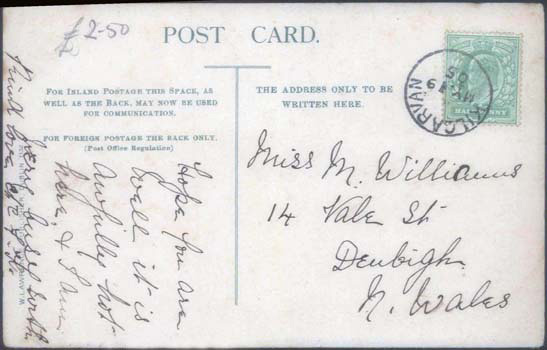 £2-50
POST CARD.
FOR INLAND POSTAGE THIS SPACE, AS
WELL AS THE BACK, MAY NOW BE USED
FOR COMMUNICATION.
FOR FOREIGN POSTAGE THE BACK ONLY.
(Post Office Regulation)
THE ADDRESS ONLY TO BE
WRITTEN HERE.
KILGARVAN
HALF PENNY
Miss M. Williams
14 Vale St
Denbigh
N. Wales
Hope you are
well it is
awfully hot
here, & I am
here
with
Kind love